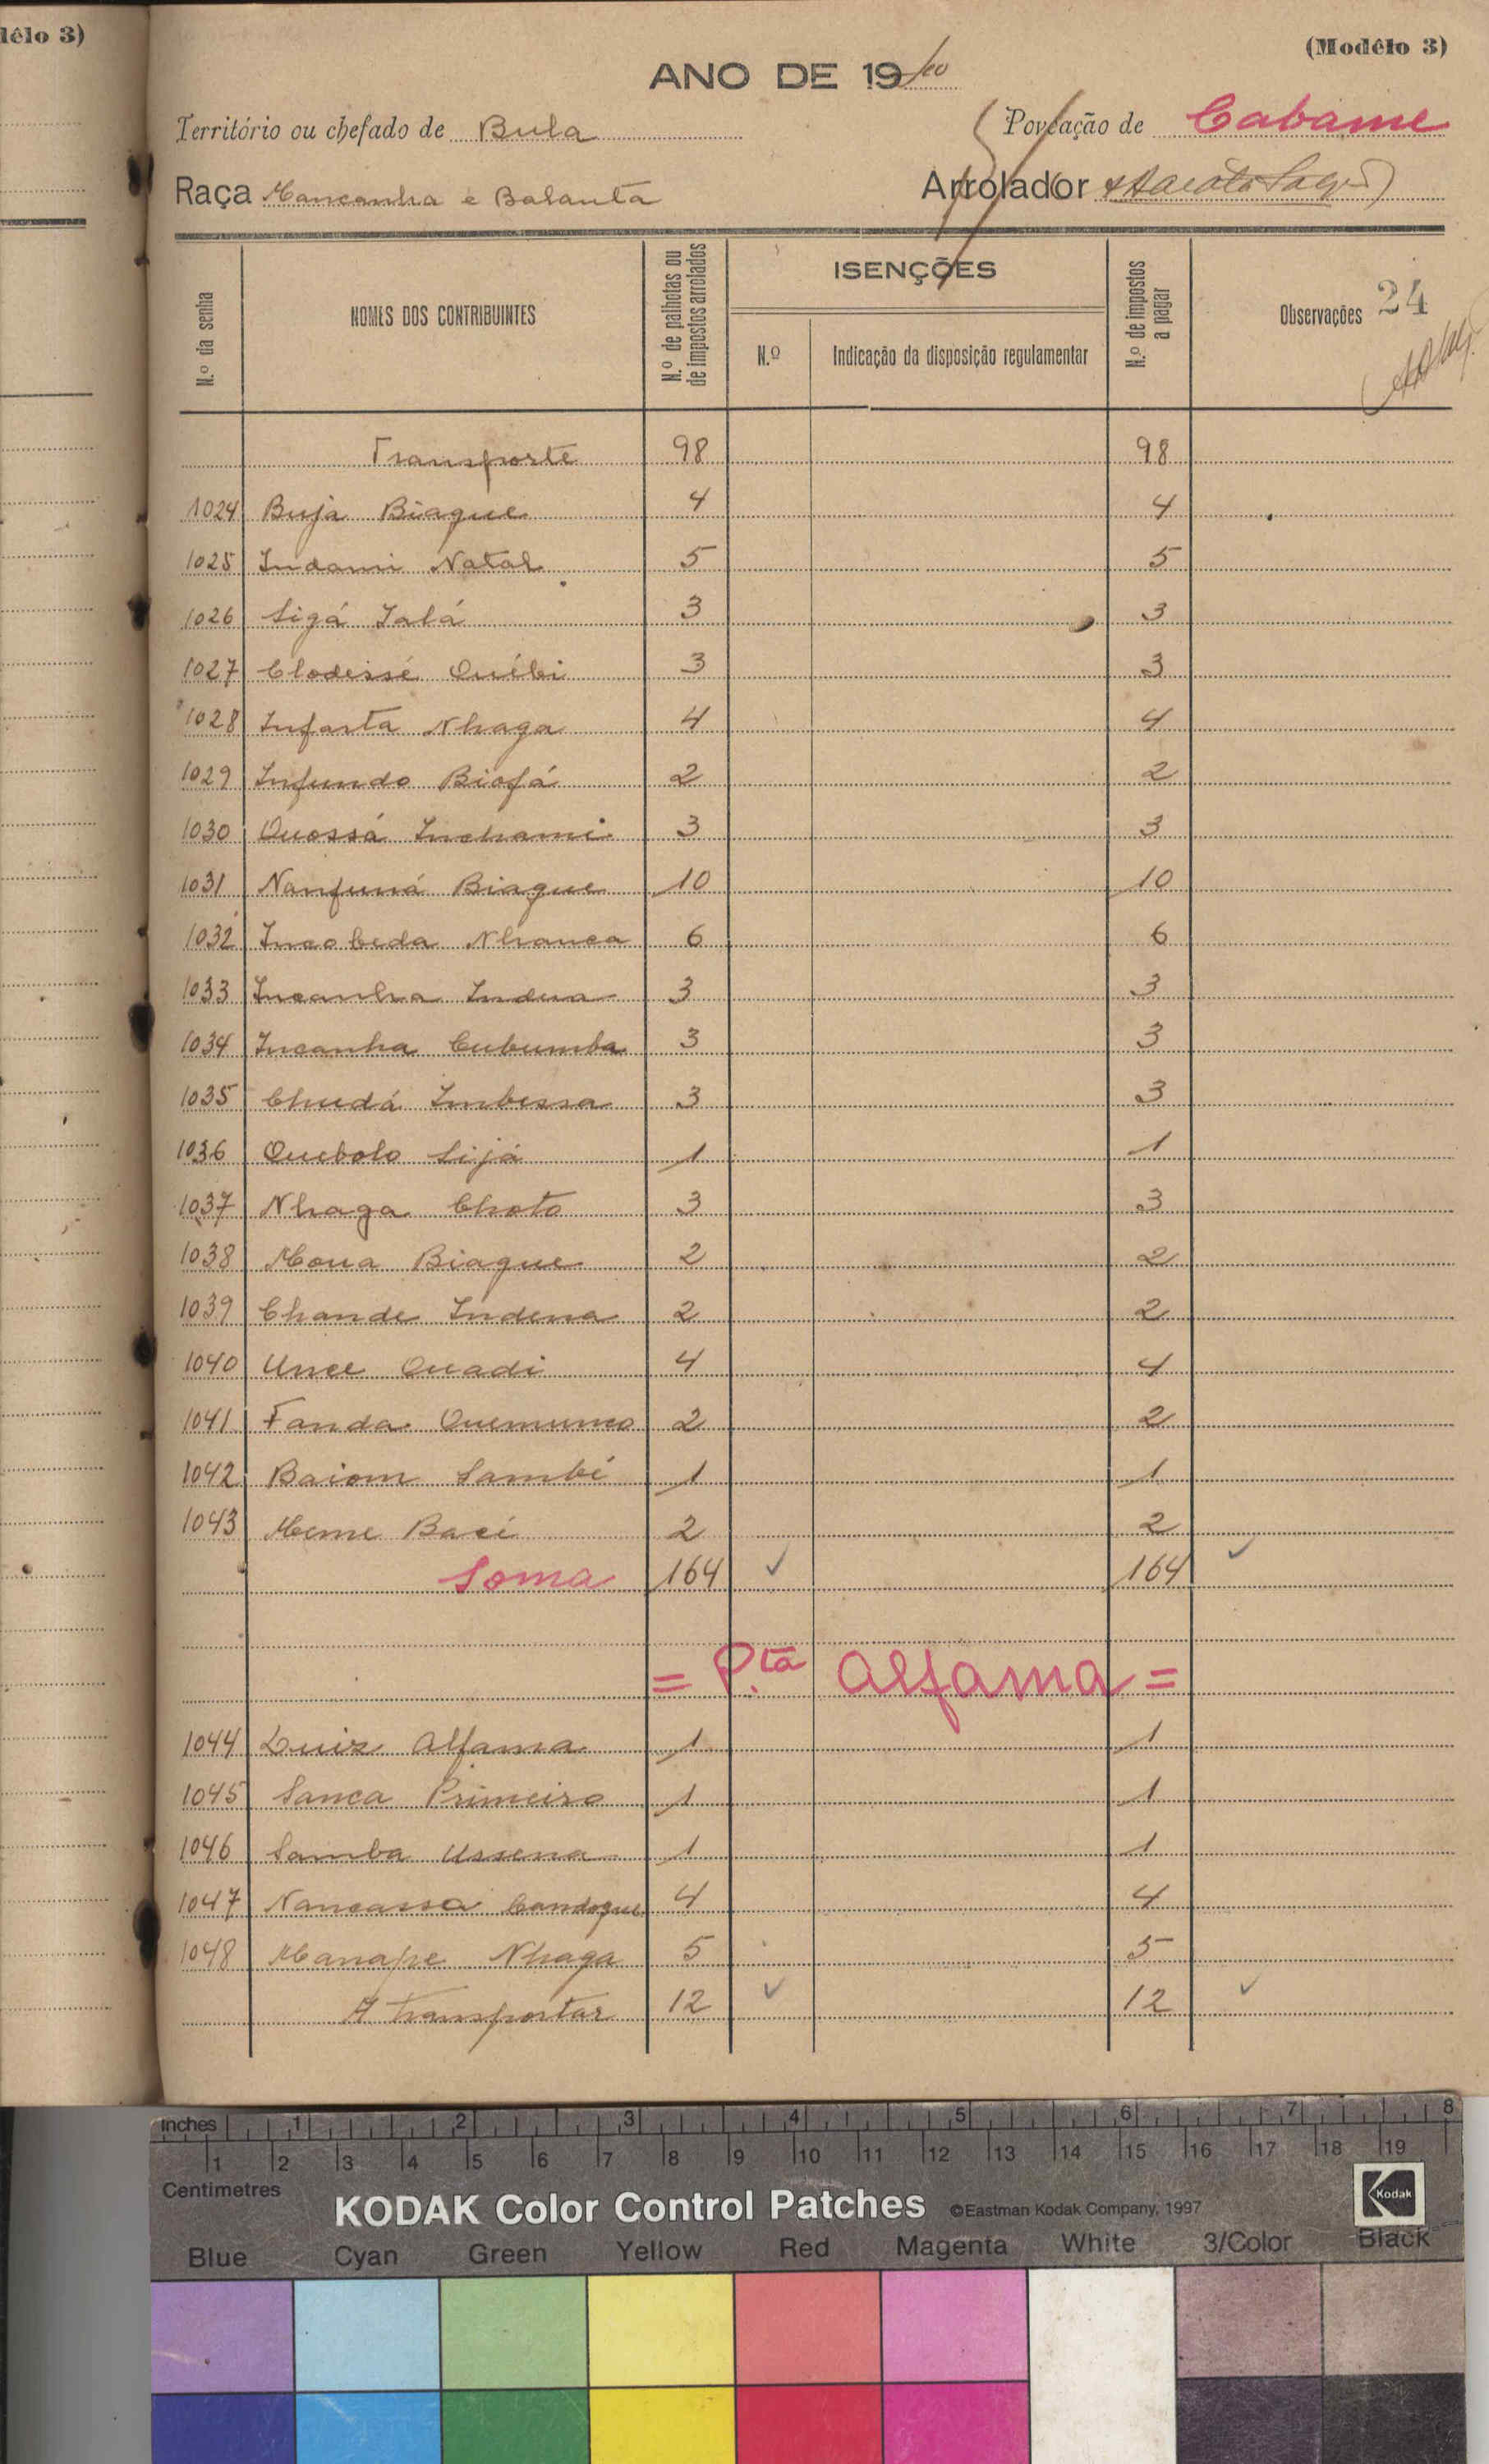 lêlo 3)
(Modêlo 3)
ANO DE 19
Território ou chefado de Bula
Povoação de Cabame
Raça Mancanha e Balanta
Arrolador
N.º da senha
NOMES DOS CONTRIBUINTES
N.º de palhotas ou de impostos arrolados
ISENÇÕES
N.º
Indicação da disposição regulamentar
N.º de impostos a pagar
Observações 24
Transporte 98 98
1024 Buja Biague 4 4
1025 Indami Natal 5 5
1026 Sigá Ialá 3 3
1027 Clodessé Québi 3 3
1028 Infanta Nhaga 4 4
1029 Infundo Biofá 2 2
1030 Quossá Inchami 3 3
1031 Nanfuná Biague 10 10
1032 Incobeda Nhanca 6 6
1033 Incanha Indua 3 3
1034 Incanha Cubumba 3 3
1035 Chudá Imbessa 3 3
1036 Quebolo Sijá 1 1
1037 Nhaga Choto 3 3
1038 Mona Biague 2 2
1039 Chande Indena 2 2
1040 Unce Quadi 4 4
1041 Fanda Quemumo 2 2
1042 Baiom Sambé 1 1
1043 Meme Bacé 2 2
Soma 164 ✓ 164 ✓
= P.ta Alfama =
1044 Luiz Alfama 1 1
1045 Sanca Primeiro 1 1
1046 Samba Ussena 1 1
1047 Nancassa Candoque 4 4
1048 Manape Nhaga 5 5
A transportar 12 ✓ 12 ✓
Inches 1 2 3 4 5 6 7 8
1 2 3 4 5 6 7 8 9 10 11 12 13 14 15 16 17 18 19
Centimetres
KODAK Color Control Patches ©Eastman Kodak Company, 1997 Kodak
Blue Cyan Green Yellow Red Magenta White 3/Color Black